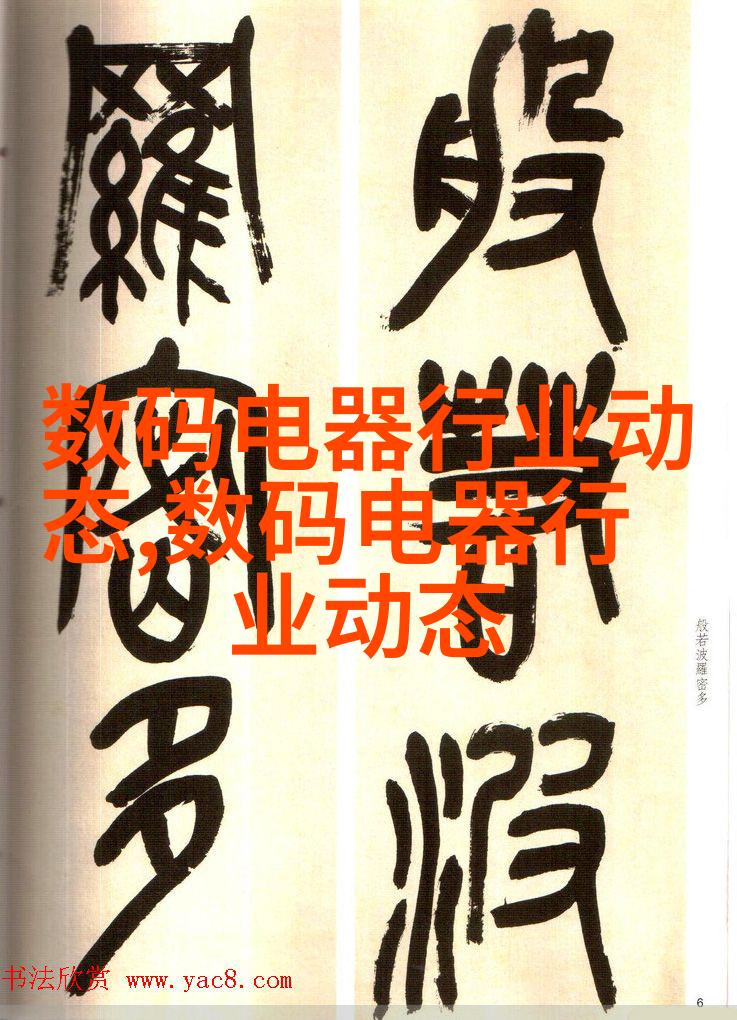 般若波
羅密多
数码电器行业动
态,数码电器行
业动态
般若波羅密多
书法欣赏 www.yac8.com
6